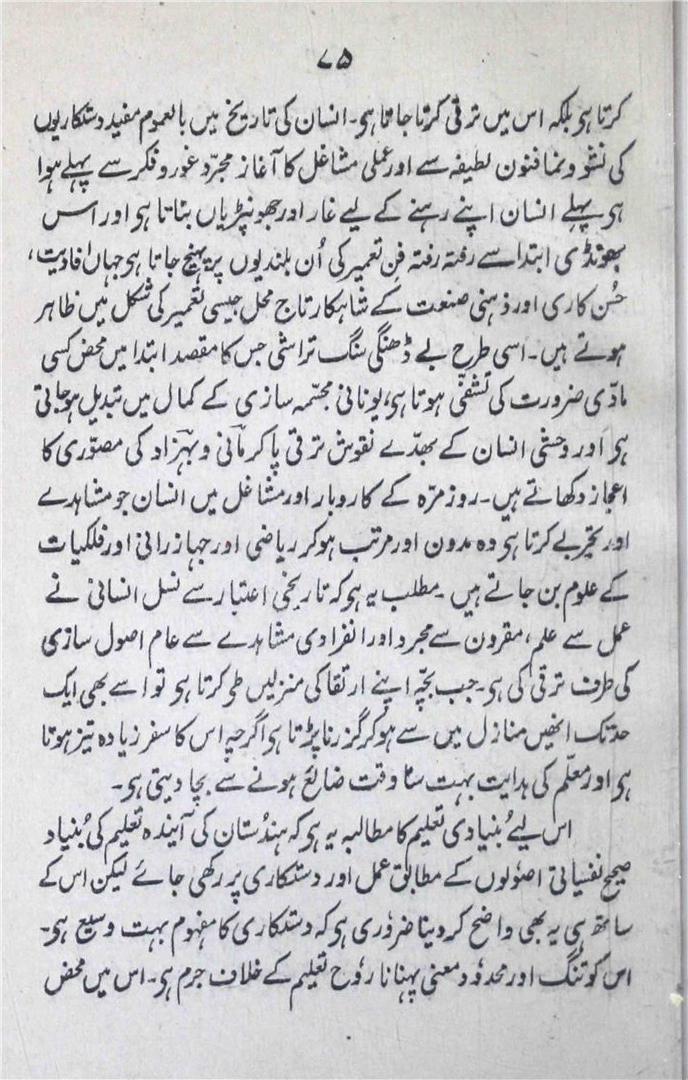 ۷۵
کرتا ہو بلکہ اس میں ترقی کرتا جاتا ہو۔ انسان کی تاریخ میں بالعموم مفید دستکاریوں
کی نشو و نما فنونِ لطیفہ سے اور عملی مشاغل کا آغاز مجرّد غور و فکر سے پہلے ہوا
ہو۔ پہلے انسان اپنے رہنے کے لیے غار اور جھونپڑیاں بناتا ہو اور اس
بھونڈی ابتدا سے رفتہ رفتہ فنِ تعمیر کی اُن بلندیوں پر پہنچ جاتا ہو جہاں افادیت،
حُسن کاری اور ذہنی صنعت کے شاہکار تاج محل جیسی تعمیر کی شکل میں ظاہر
ہوتے ہیں۔ اسی طرح بے ڈھنگی سنگ تراشی جس کا مقصد ابتدا میں محض کسی
مادّی ضرورت کی تشفّی ہوتا ہو، یونانی مجسّمہ سازی کے کمال میں تبدیل ہوجاتی
ہو اور وحشی انسان کے بھدّے نقوش ترقی پا کر مانی و بہزاد کی مصوّری کا
اعجاز دکھاتے ہیں۔ روزمرّہ کے کاروبار اور مشاغل میں انسان جو مشاہدے
اور تجربے کرتا ہو وہ مدون اور مرتب ہوکر ریاضی اور جہازرانی اور فلکیات
کے علوم بن جاتے ہیں۔ مطلب یہ ہو کہ تاریخی اعتبار سے نسل انسانی نے
عمل سے علم، مقرون سے مجرد اور انفرادی مشاہدے سے عام اصول سازی
کی طرف ترقی کی ہو۔ جب بچّہ اپنے ارتقا کی منزلیں طو کرتا ہو تو اسے بھی ایک
حد تک انھیں منازل میں سے ہوکر گزرنا پڑتا ہو اگرچہ اس کا سفر زیادہ تیز ہوتا
ہو اور معلّم کی ہدایت بہت سا وقت ضائع ہونے سے بچا دیتی ہو۔
اس لیے بُنیادی تعلیم کا مطالبہ یہ ہو کہ ہندُستان کی آیندہ تعلیم کی بُنیاد
صحیح نفسیاتی اصولوں کے مطابق عمل اور دستکاری پر رکھی جائے لیکن اس کے
ساتھ ہی یہ بھی واضح کر دینا ضروری ہو کہ دستکاری کا مفہوم بہت وسیع ہو۔
اس کو تنگ اور محدود معنی پہنانا روٗح تعلیم کے خلاف جرم ہو۔ اس میں محض